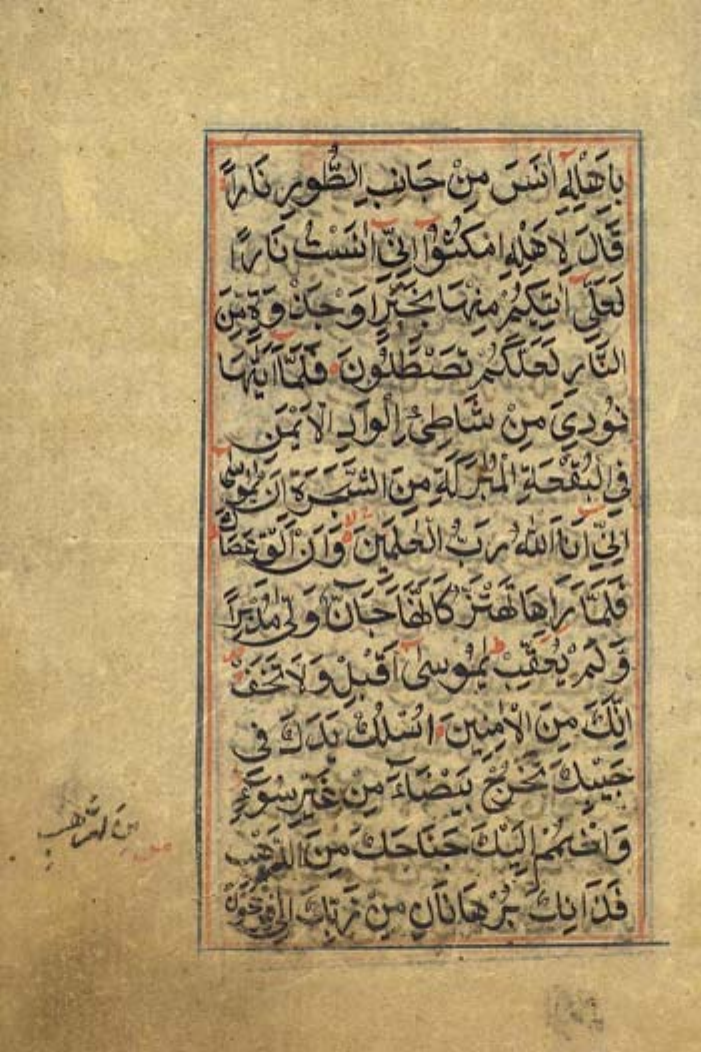 بِاَهْلِهٖٓ اٰنَسَ مِنْ جَانِبِ الطُّورِ نَارًاۚ
قَالَ لِاَهْلِهِ امْكُثُوْٓا اِنِّيْٓ اٰنَسْتُ نَارًا
لَعَلِّيْٓ اٰتِيْكُمْ مِنْهَا بِخَبَرٍ اَوْ جَذْوَةٍ مِّنَ
النَّارِ لَعَلَّكُمْ تَصْطَلُوْنَ فَلَمَّآ اَتٰىهَا
نُوْدِيَ مِنْ شَاطِئِ الْوَادِ الْاَيْمَنِ
فِي الْبُقْعَةِ الْمُبٰرَكَةِ مِنَ الشَّجَرَةِ اَنْ يّٰمُوْسٰٓى
اِنِّيْٓ اَنَا اللّٰهُ رَبُّ الْعٰلَمِيْنَ وَاَنْ اَلْقِ عَصَاكَ
فَلَمَّا رَاٰهَا تَهْتَزُّ كَاَنَّهَا جَانٌّ وَلّٰى مُدْبِرًا
وَلَمْ يُعَقِّبْ يٰمُوْسٰٓى اَقْبِلْ وَلَا تَخَفْ
اِنَّكَ مِنَ الْاٰمِنِيْنَ اُسْلُكْ يَدَكَ فِيْ
جَيْبِكَ تَخْرُجْ بَيْضَآءَ مِنْ غَيْرِ سُوْٓءٍ
وَاضْمُمْ اِلَيْكَ جَنَاحَكَ مِنَ الرَّهْبِ
فَذٰنِكَ بُرْهَانَانِ مِنْ رَبِّكَ اِلٰى فِرْعَوْنَ
مِنَ الرَّهْبِ